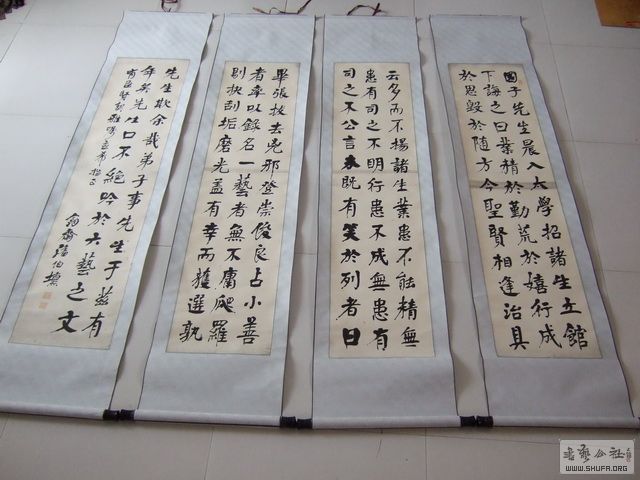 國子先生晨入太學招諸生立館
下誨之曰業精於勤荒於嬉行成
於思毀於隨方今聖賢相逢治具
云多而不揚諸生業患不能精無
患有司之不明行患不成無患有
司之不公言未既有笑於列者曰
畢張拔去兇邪登崇俊良占小善
者率以錄名一藝者無不庸爬羅
剔抉刮垢磨光蓋有幸而獲選孰
先生欺余哉弟子事先生于茲有
年矣先生口不絕吟於六藝之文
WWW.SHUFA.ORG